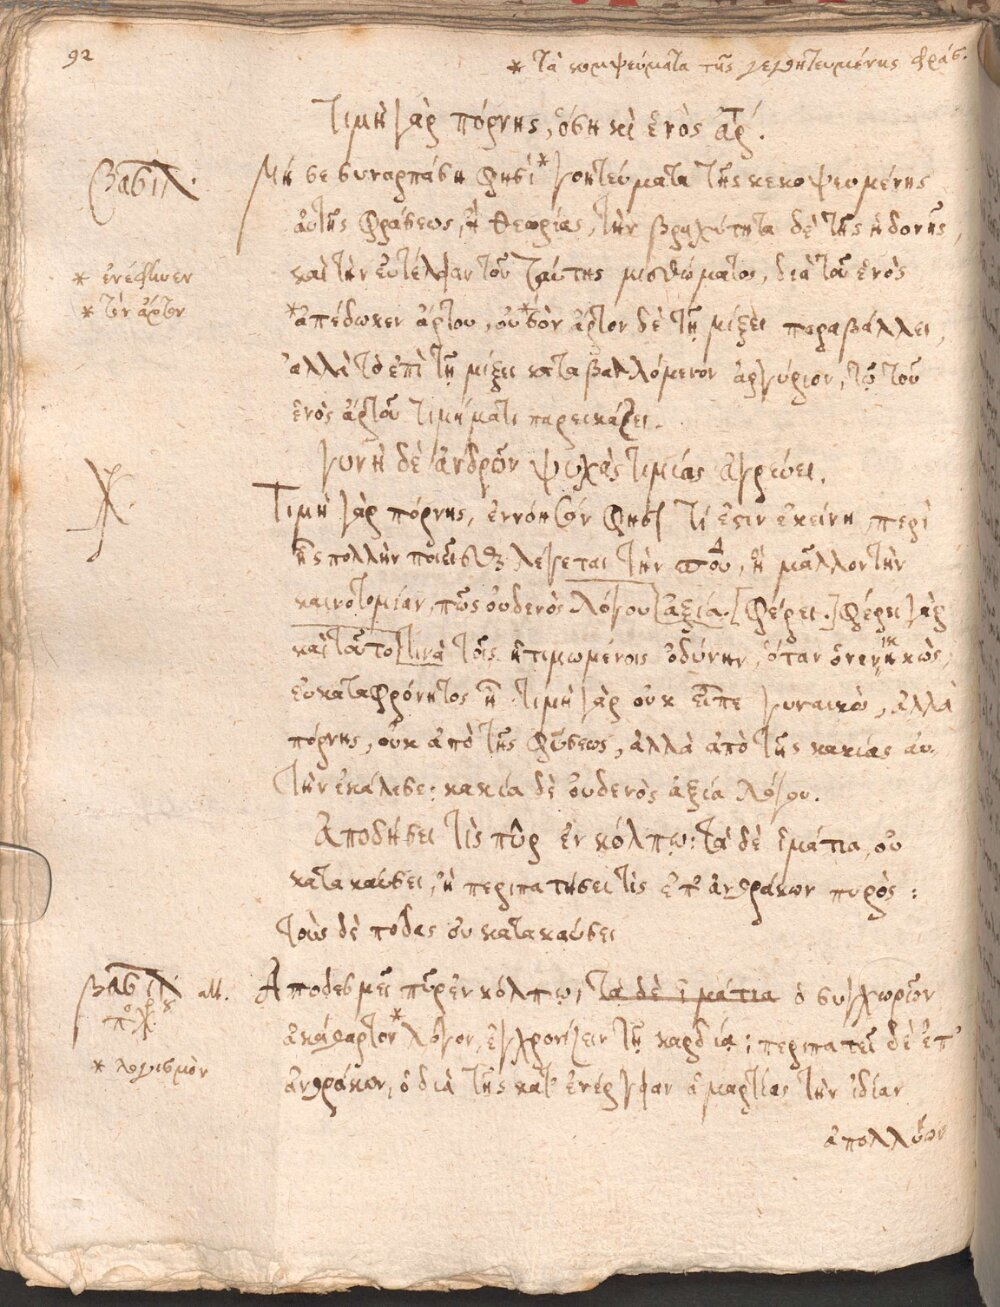 92
* τὰ κομψεύματα τῆς γεγοητευμένης φράσ.
Τιμὴ γὰρ πόρνης, ὅση κὶ ἑνὸς ἄρ.
Βασιλ.
Μή σε συναρπάση φησὶ * γοητεύματα τῆς κεκομψευμένης
αὐτῆς φράσεως, ἢ θεωρίας, τὴν βραχύτητα δὲ τῆς ἡδονῆς,
* ἐνέφηνεν
καὶ τὴν εὐτέλειαν τοῦ ταύτης μισθώματος, διὰ τοῦ ἑνὸς
* τὸν ἄρτον
* ἀπέδωκεν ἄρτου, οὐ * τὸν ἄρτον δὲ τῇ μίξει παραβάλλει,
ἀλλὰ τὸ ἐπὶ τῇ μίξει καταβαλλόμενον ἀργύριον, τῷ τοῦ
ἑνὸς ἄρτου τιμήματι παρεικάζει.
Γυνὴ δὲ ἀνδρῶν ψυχὰς τιμίας ἀγρεύει.
Χ.
Τιμὴ γὰρ πόρνης, ἐννόησον φησὶ τί ἐστιν ἐκείνη, περὶ
ἧς πολλὴν ποιεῖσθαι λέγεται τὴν, ἢ μᾶλλον τὴν
καινοτομίαν, πῶς οὐδενὸς λόγου [ἀξία.] [φέρει.] φέρει γὰρ
καὶ τοῦτο τινὰ τοῖς ἠτιμωμένοις ὀδύνην, ὅταν
εὐκαταφρόνητος ᾖ τιμὴ γὰρ οὐκ εἶπε γυναικὸς, ἀλλὰ
πόρνης, οὐκ ἀπὸ τῆς φύσεως, ἀλλὰ ἀπὸ τῆς κακίας αὐ
τὴν ἐκάλεσε· κακία δὲ οὐδενὸς ἀξία λόγου.
Ἀποδήσει τὶς πῦρ ἐν κόλπῳ: τὰ δὲ ἱμάτια οὐ
κατακαύσει, ἢ περιπατήσει τὶς ἐπ' ἀνθράκων πυρὸς:
τοὺς δὲ πόδας οὐ κατακαύσει
Βασιλ
Ἀποδεσμεῖ πῦρ ἐν κόλπῳ, τὰ δὲ ἱμάτια ὁ συγχωρῶν
ἀκάθαρτον * λόγον, ἐγχρονίζειν τῇ καρδίᾳ; περιπατεῖ δὲ ἐπ'
* λογισμὸν
ἀνθράκων, ὁ διὰ τῆς κατ' ἐνέργειαν ἁμαρτίας τὴν ἰδίαν
ἀπολλύων